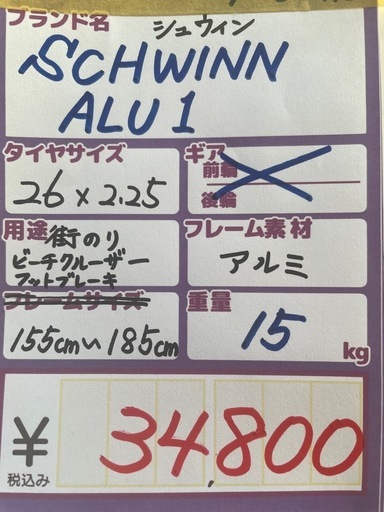 ブランド名 シュウィン
SCHWINN
ALU 1
タイヤサイズ
26 × 2.25
ギア
前輪
後輪
用途 街のり
ビーチクルーザー
フットブレーキ
フレーム素材
アルミ
フレームサイズ
155cm〜185cm
重量
15 kg
¥ 34,800
税込み